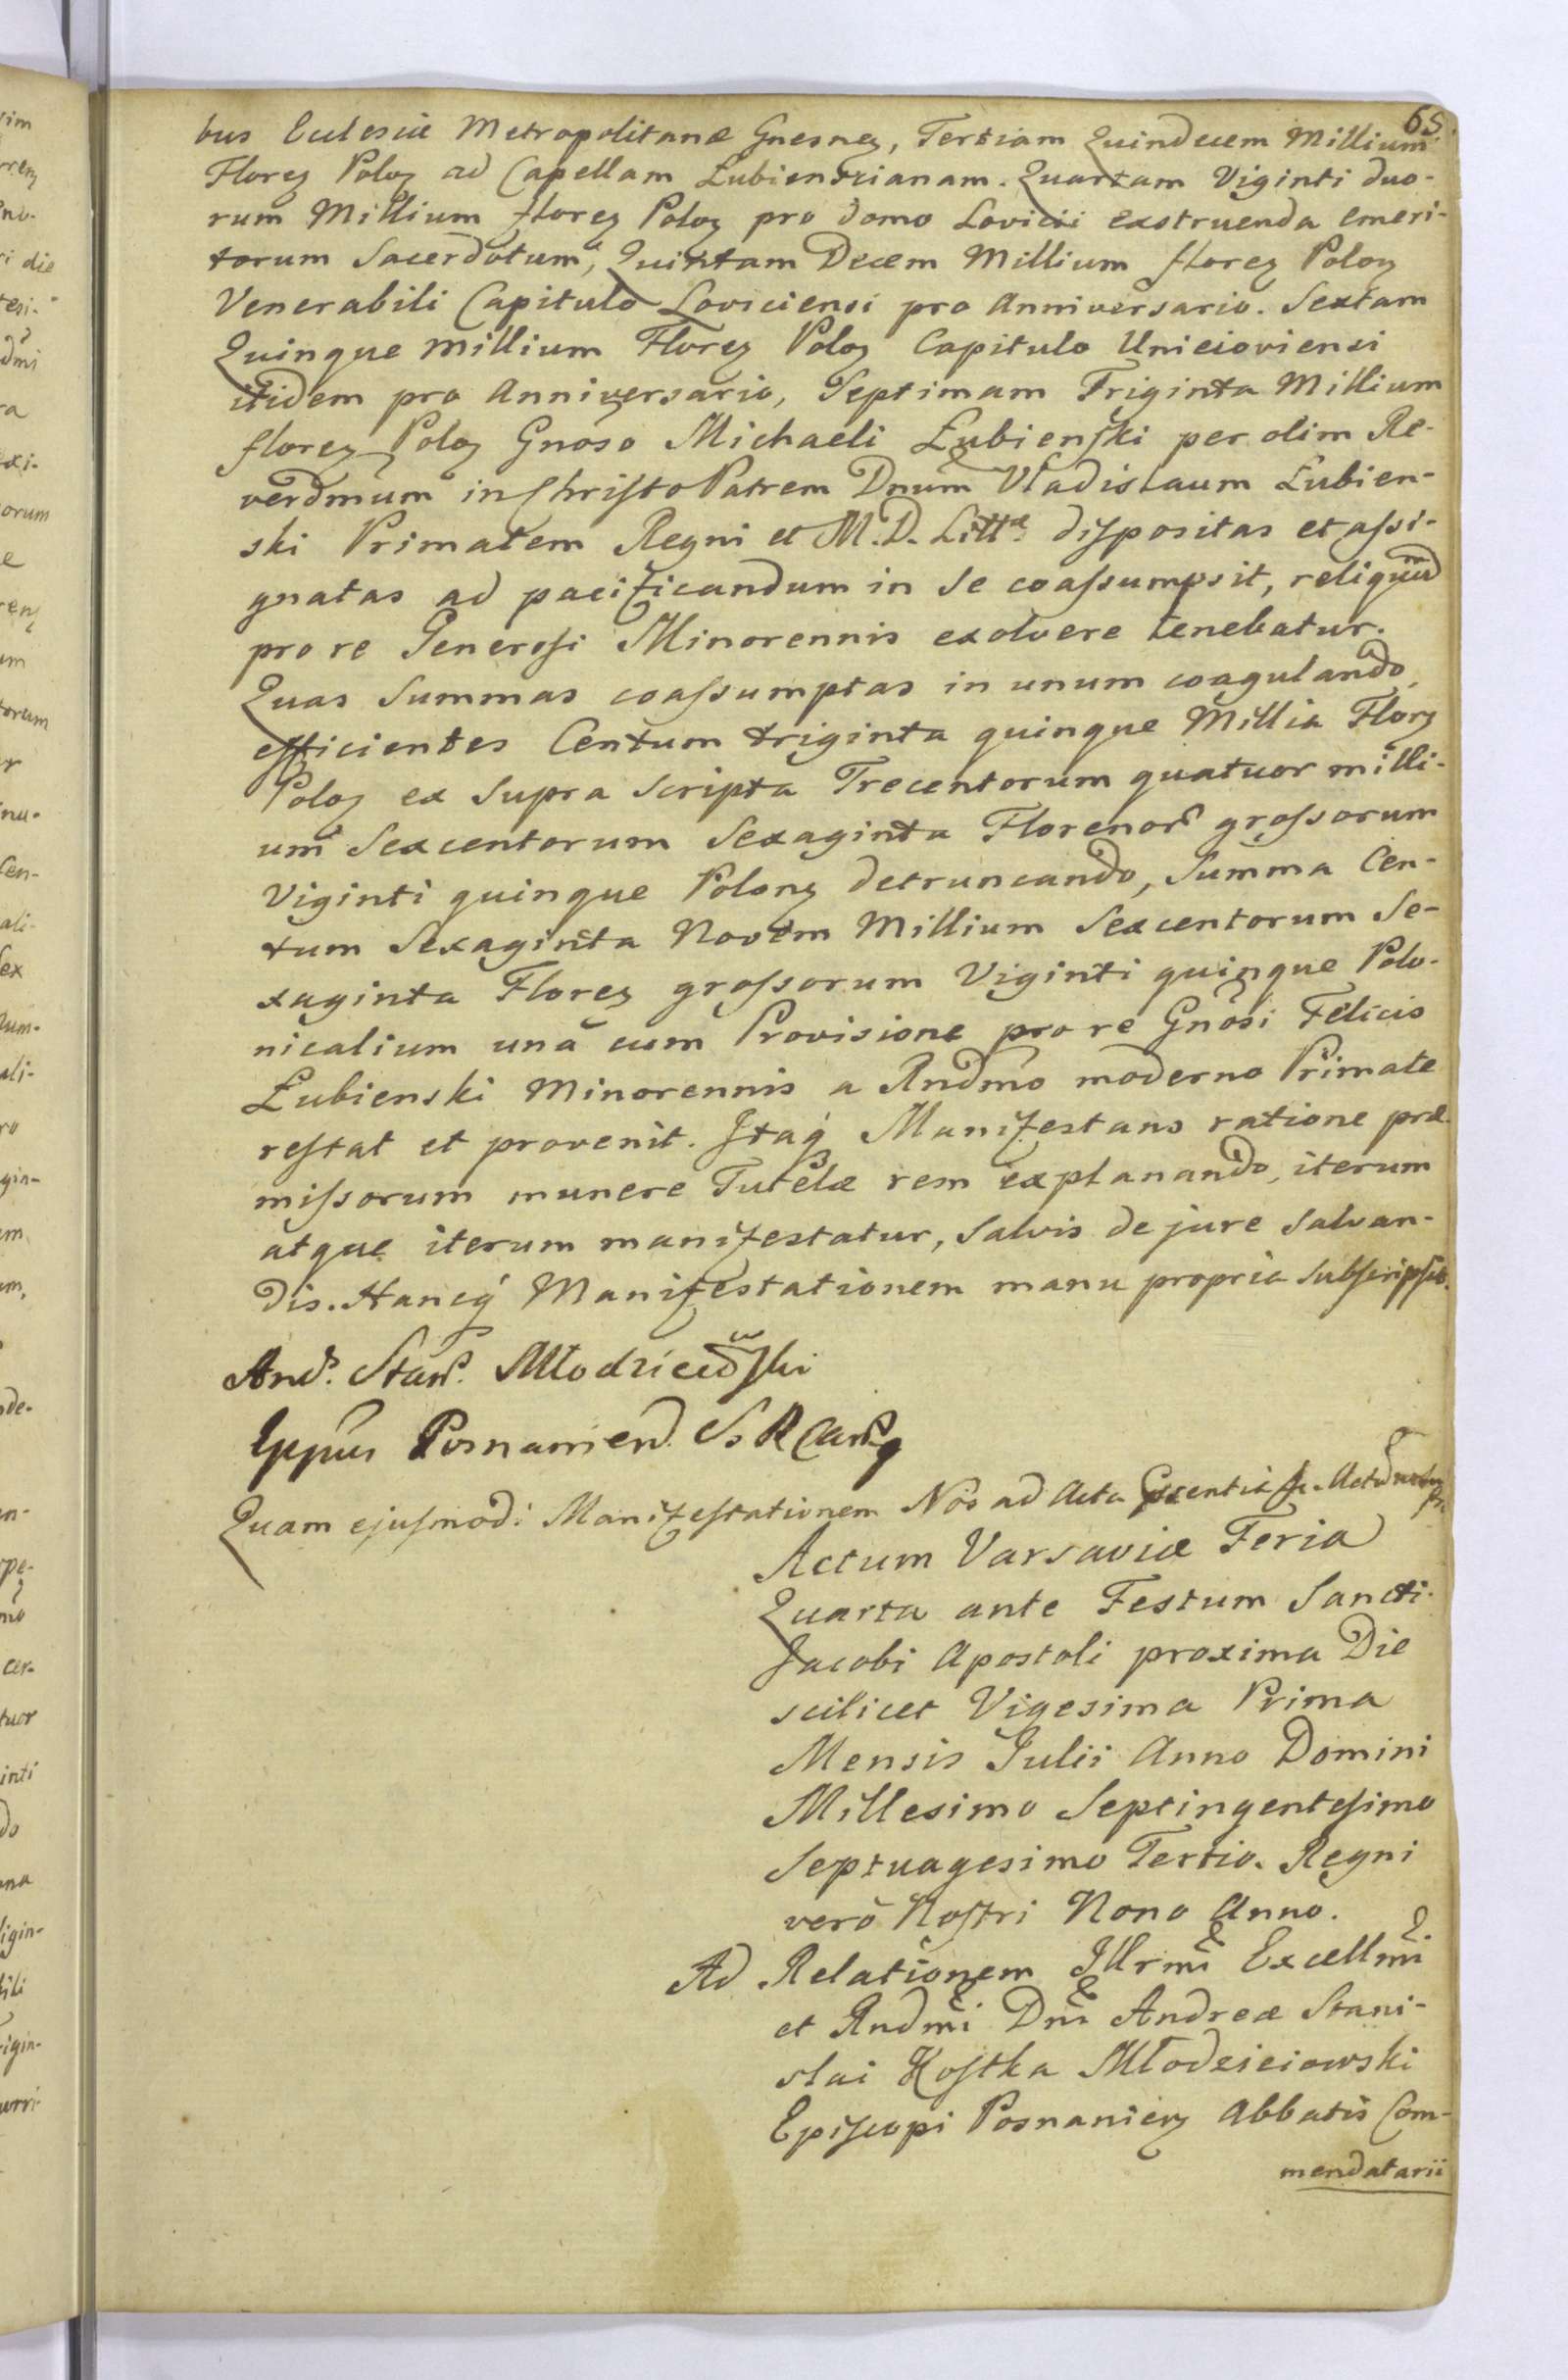 65.
bus Ecclesiæ Metropolitanæ Gnesnęz, Tertiam Quindecem Millium
Florez Poloz ad Capellam Łubienscianam. Quartam Viginti duo-
rum Millium florez Poloz pro domo Lovicii exstruenda emeri-
torum Sacerdotum, Quintam Decem Millium florez Poloz
Venerabili Capitulo Loviciensi pro Anniversario. Sextam
Quinque Millium Florez Poloz Capitulo Unieioviensi
itidem pro Anniversario, Septimam Triginta Millium
florez Poloz Gnoso Michaeli Łubienſki per olim Re-
verdmum in Chriſto Patrem Dnum Vladislaum Łubien-
ski Primatem Regni et M.D. Littæ diſpositas et aſsi-
gnatas ad pacificandum in Se coaſsumpsit, reliquum
pro re Generoſi Minorennis exolvere tenebatur.
Quas Summas coaſsumptas in unum coagulando,
efficientes Centum triginta quinque Millia Florz
Poloz ex Supra Scripta Trecentorum quatuor milli-
um Sexcentorum Sexaginta Florenor groſsorum
Viginti quinque Polonz detruncando, Summa Cen-
tum Sexaginta Novem Millium Sexcentorum Se-
xaginta Florez groſsorum Viginti quinque Polo-
nicalium unà cum Provisione pro re Gnosi Felicis
Łubienski Minorennis a Rndmo moderno Primate
reſtat et provenit. Itaq́ Manifestans ratione præ-
miſsorum munere Tutelæ rem explanando, iterum
atque iterum manifestatur, Salvis de jure Salvan-
dis. Hancq́ Manifestationem manu propria Subſcripſit.
And. Stan. Młodzieiowſki
Eppus Posnanien. S R Canz
Quam ejuſmodi Manifeſtationem Nos ad Acta
Actum Varsaviæ Feria
Quarta ante Festum Sancti
Jacobi Apostoli proxima Die
scilicet Vigesima Prima
Mensis Julii Anno Domini
Millesimo Septingenteſimo
Septuagesimo Tertio. Regni
verò Noſtri Nono Anno.
Ad Relationem Illrmi Excellmi
et Rndmi Dni Andreæ Stani-
slai Koſtka Młodzieiowski
Epiſcopi Posnaniez Abbatis Com-
mendatarii